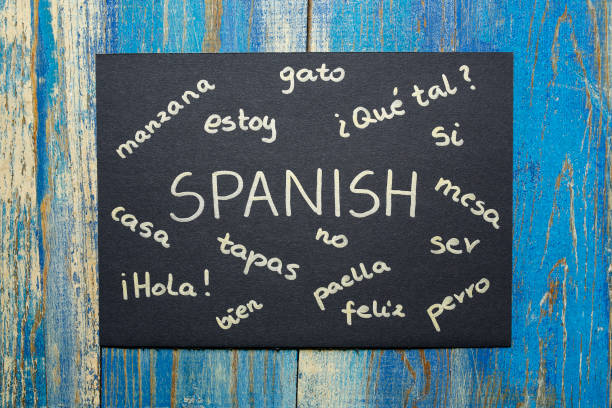 gato
manzana
estoy
¿Qué tal?
si
SPANISH
mesa
casa
tapas
no
ser
¡Hola!
paella
bien
feliz
perro